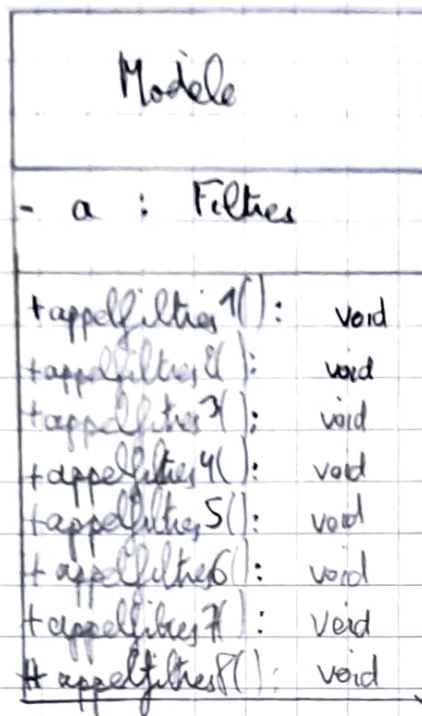 Modèle
- a : Filtres
+appelfiltres1() : void
+appelfiltres2() : void
+appelfiltres3() : void
+appelfiltres4() : void
+appelfiltres5() : void
+ appelfiltres6() : void
+appelfiltres7() : void
+ appelfiltres8() : void